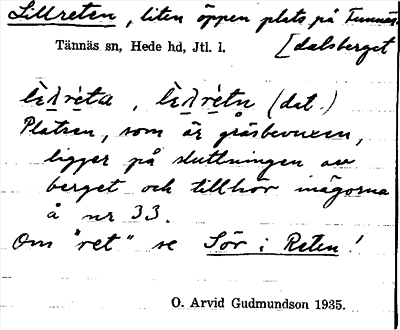 Lillreten, liten öppen plats på Tennäs-
Tännäs sn, Hede hd, Jtl. l. [dalsberget
(dat.)
Platsen, som är gräsbevuxen,
ligger på sluttningen av
berget och tillhör inägorna
å nr 33.
Om "ret" se Sör i Reten!
O. Arvid Gudmundson 1935.